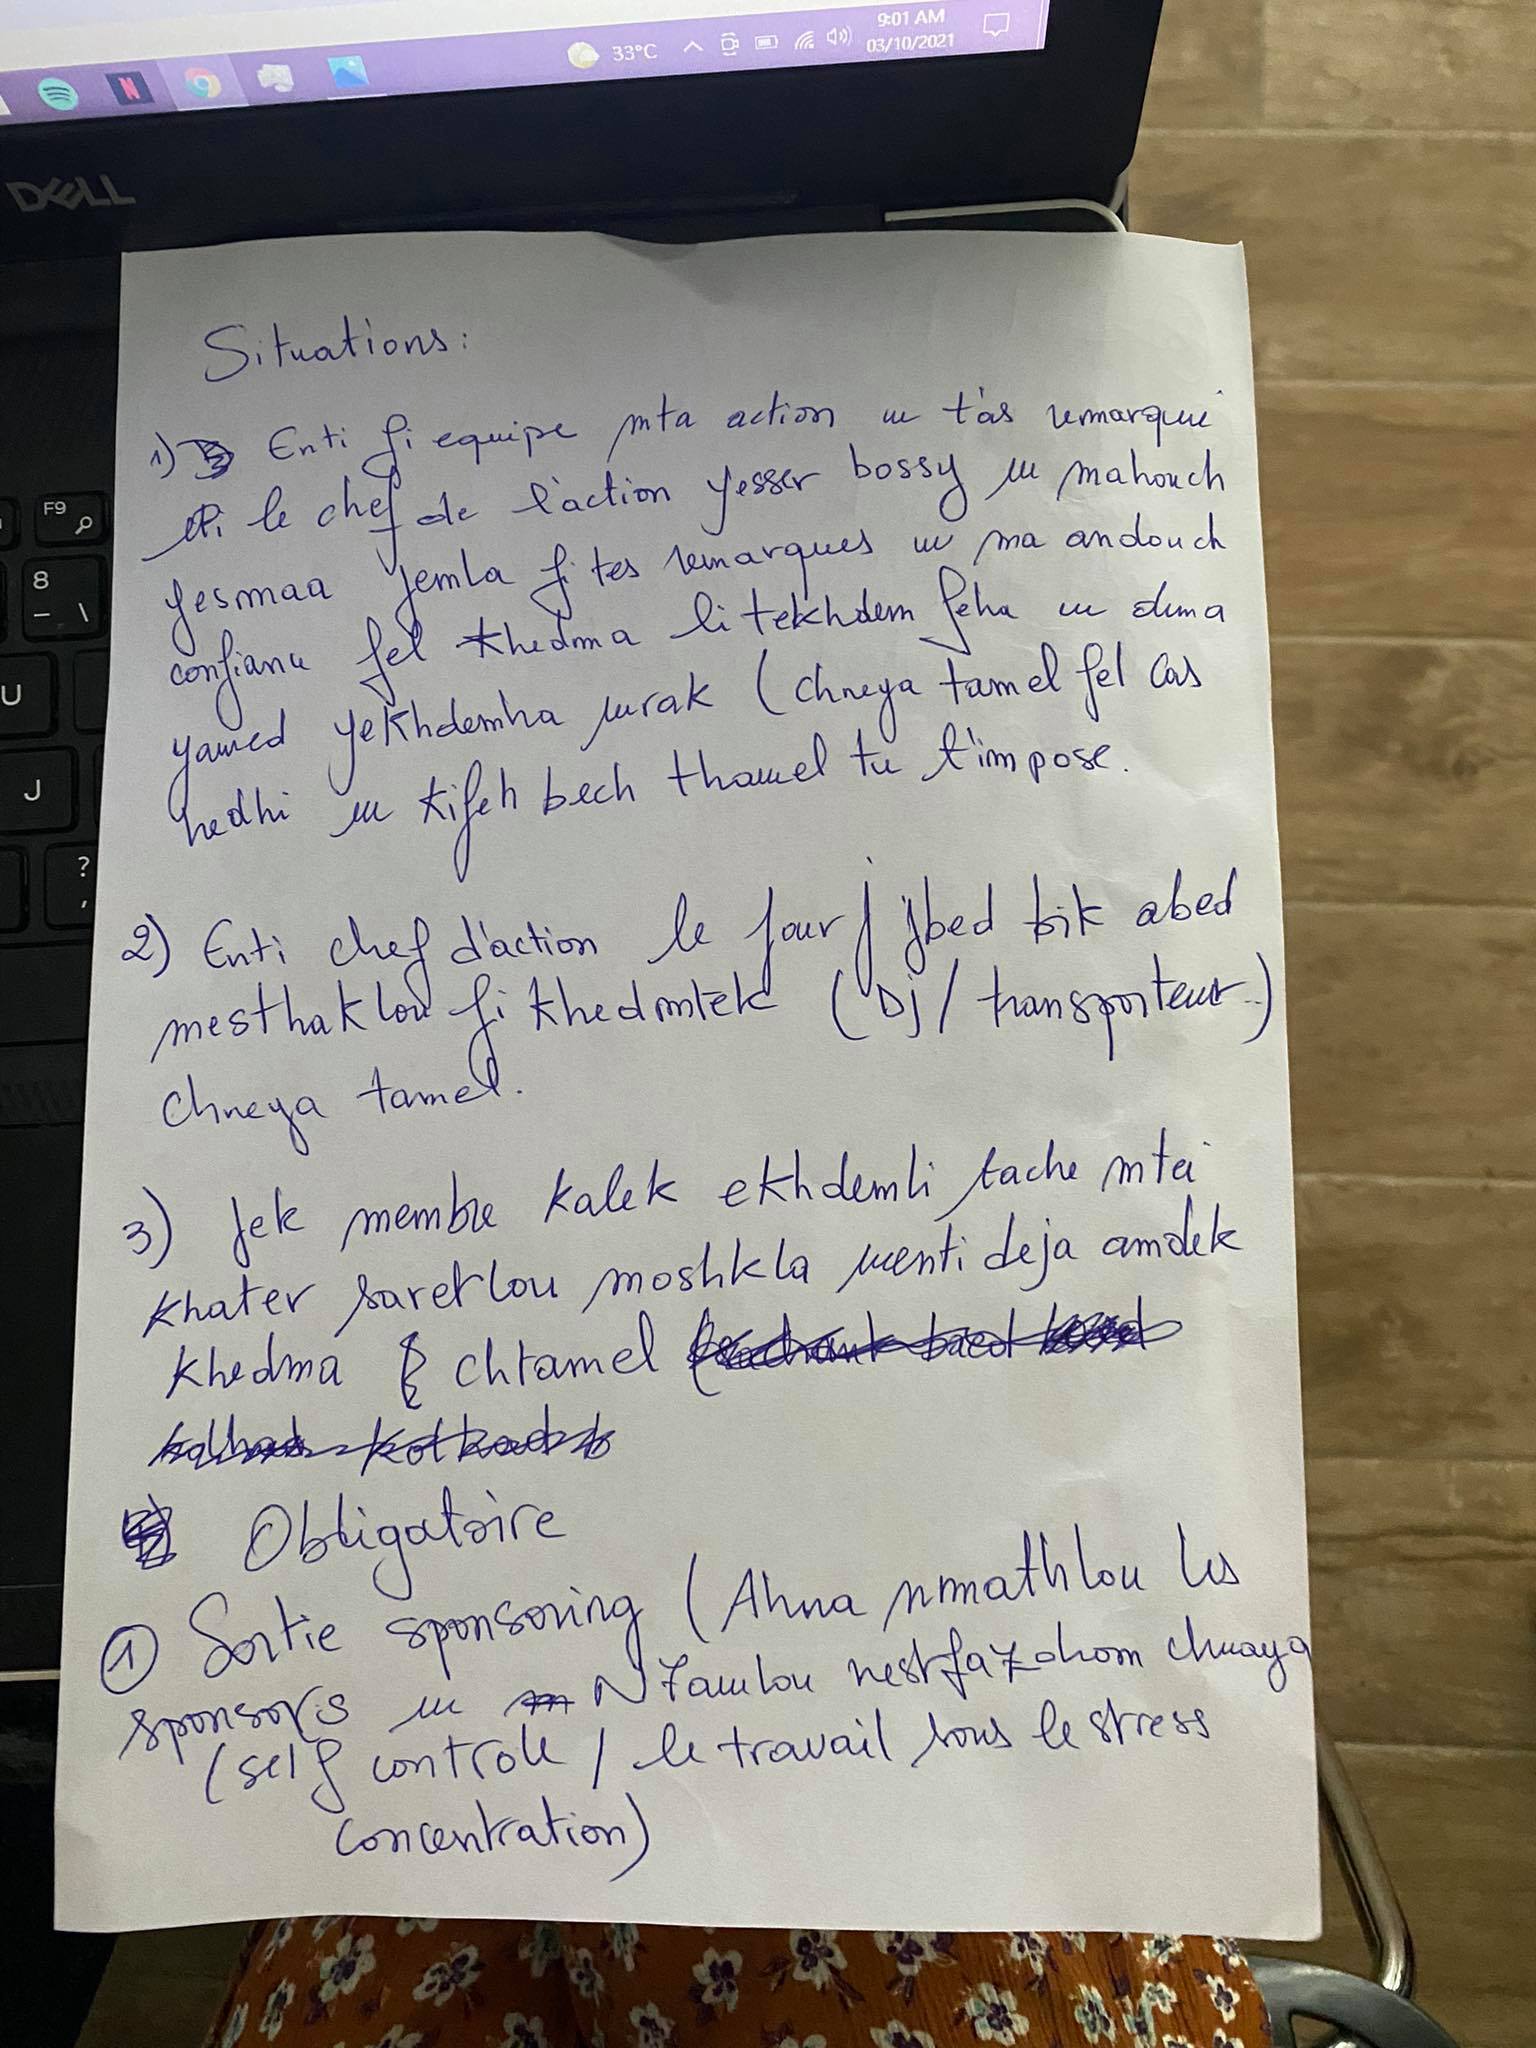 33°C
9:01 AM
03/10/2021
DELL
F9
8
- \
U
J
?
,
Situations:
1) Enti fi equipe mta action w t'as remarqué
eli le chef de l'action yesser bossy w mahouch
yesmaa jemla fi tes remarques w ma andouch
confiance fel khedma li tekhdem feha w dima
yawed yekhdemha wrak (chneya tamel fel cas
hedhi w kifeh bech thawel tu t'impose.
2) Enti chef d'action le jour j jbed bik abed
mesthaklou fi khedmtek (Dj/transporteur..)
chneya tamel.
3) Jek membre kalek ekhdemli tache mtei
khater saretlou moshkla wenti deja andek
khedma chtamel
Obligatoire
1 Sortie sponsoring (Ahna nmathlou les
sponsors w N7awlou nestfazohom chwaya
(self controle / le travail sous le stress
concentration)